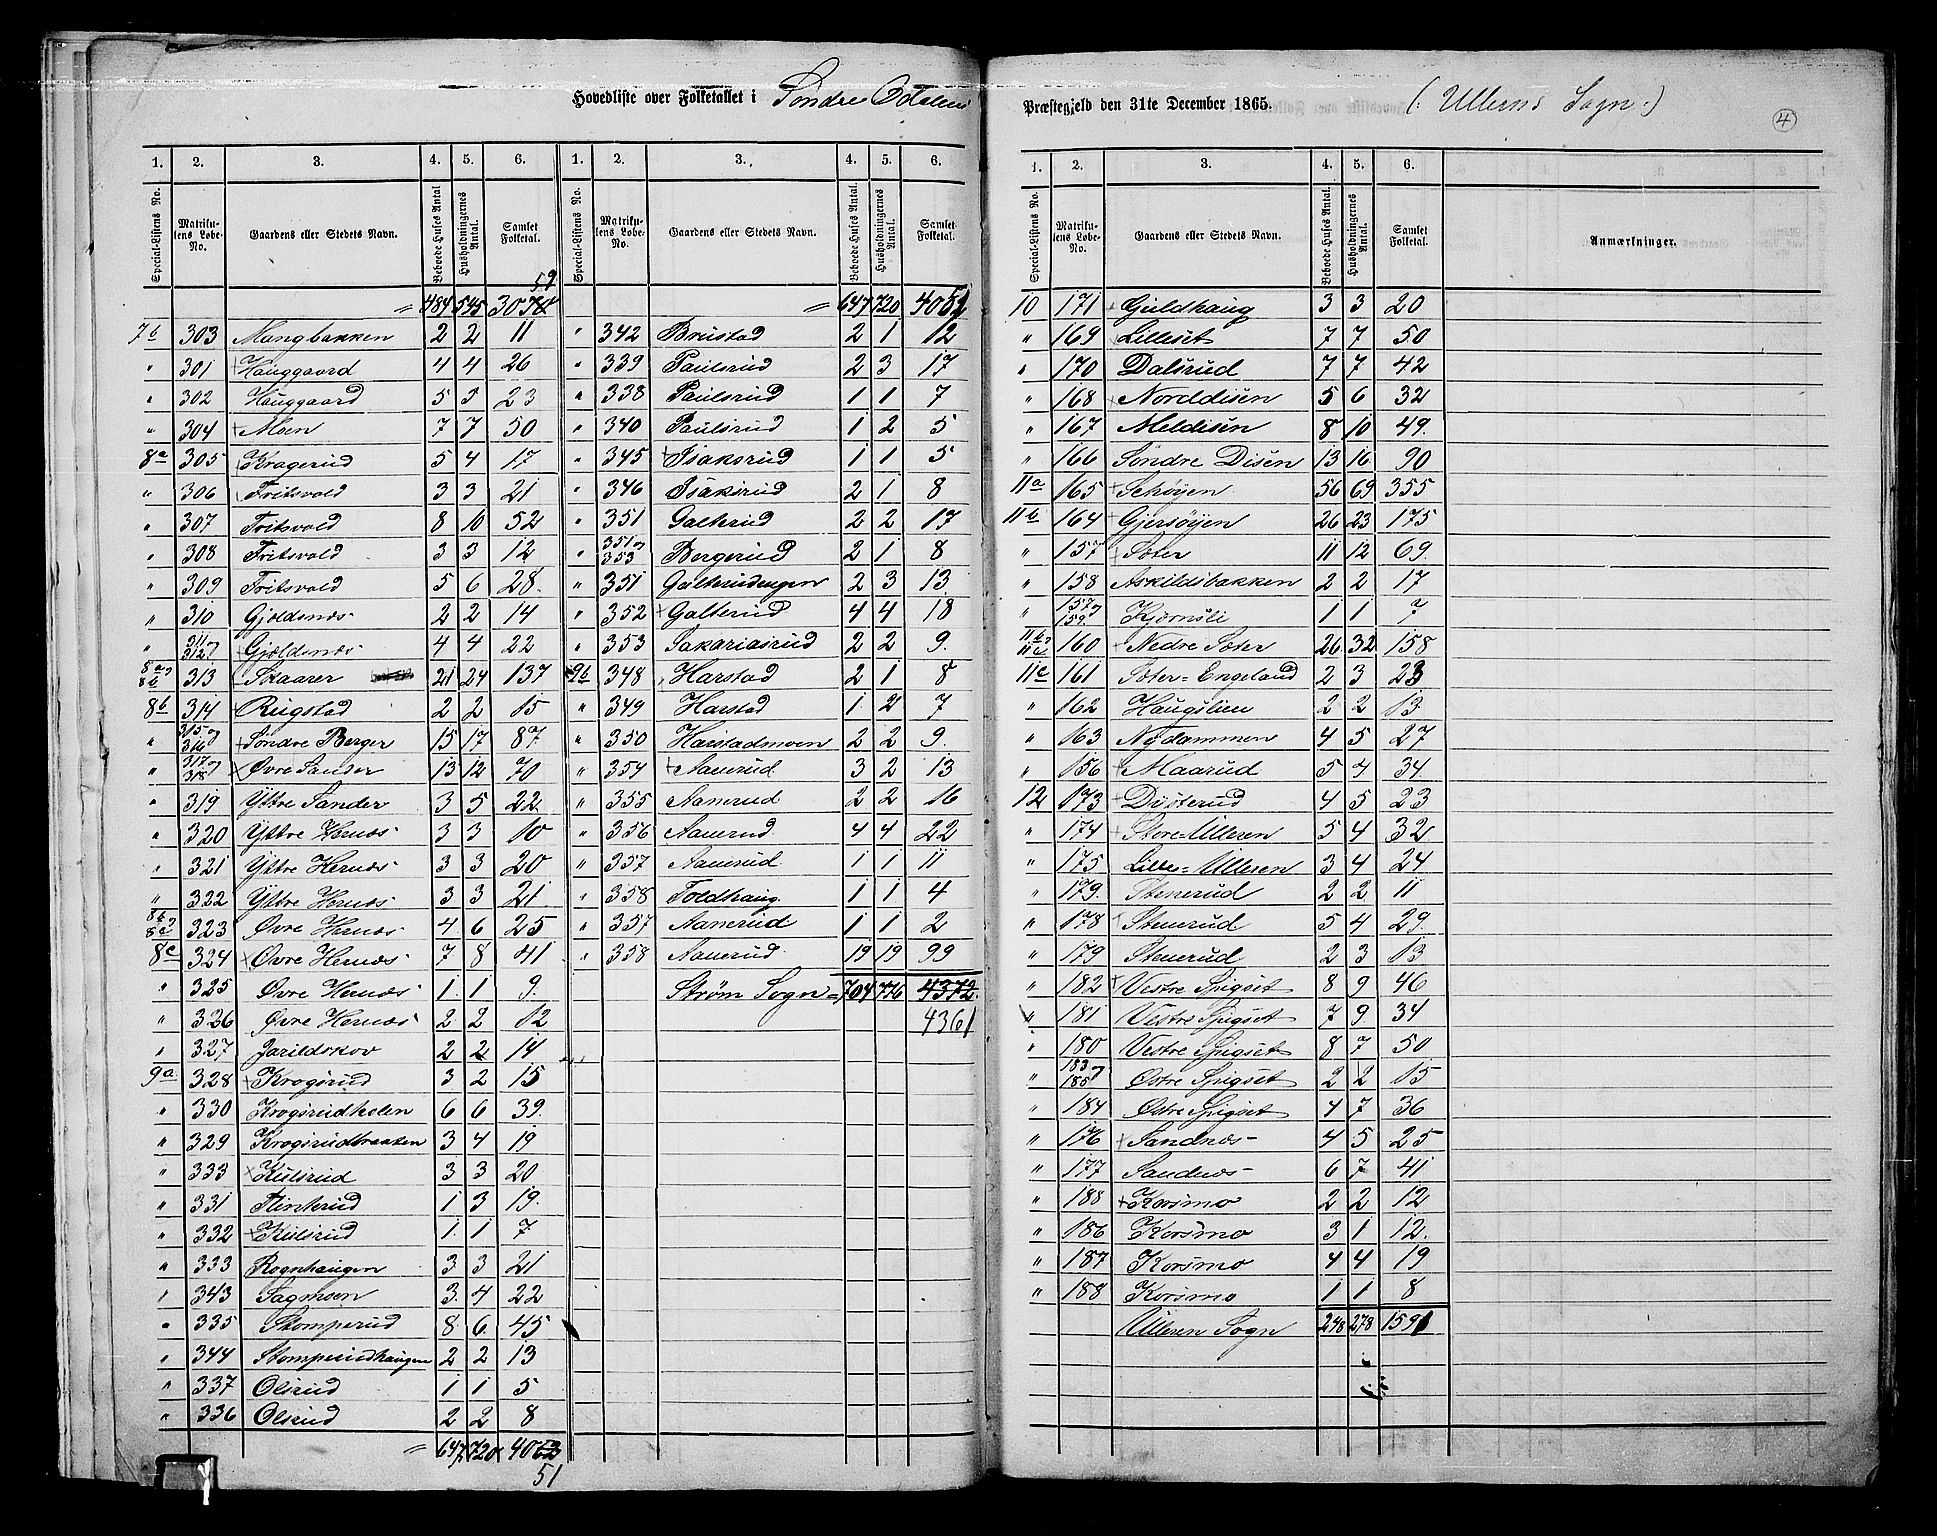 Hovedliste over Folketallet i Søndre Odalens Præstegjeld den 31te December 1865. (: Ullerns Sogn :)
4
1. 2. 3. 4. 5. 6. 1. 2. 3. 4. 5. 6.
Special-Listens No. Matrikulens Løbe-No. Gaardens eller Stedets Navn. Beboede Huses Antal Husholdningernes Antal. Samlet Folketal. Special-Listens No. Matrikulens Løbe-No. Gaardens eller Stedets Navn. Beboede Huses Antal. Husholdningernes Antal. Samlet Folketal.
59
= 484 545 3070
7b 303 Mangbakken 2 2 11
" 301 Hauggaard 4 4 26
" 302 Hauggaard 5 5 23
" 304 Moen 7 7 50
8a 305 Kragerud 5 4 17
" 306 Fritsvold 3 3 21
" 307 Fritsvold 8 10 52
" 308 Fritsvold 3 3 12
" 309 Fritsvold 5 6 28.
" 310 Gjeldsnæs 2 2 14
" 311 312 Gjældsnæs 4 4 22
8a 8b 313 Skaarer 21 24 137
8b 314 Rugstad 2 2 15
" 315 316 Søndre Berger 15 17 87.
" 317 318 Øvre Sander 13 12 70
" 319 Yttre Sander 3 5 22
" 320 Yttre Hernæs 3 3 10
" 321 Yttre Hernæs 3 3 20
" 322 Yttre Hernæs 3 3 21.
8b 8c 323 Øvre Hernæs 4 6 25
8c 324 Øvre Hernæs 7 8 41
" 325 Øvre Hernæs 1 1 9.
" 326 Øvre Hernæs 2 2 12
" 327 Jarildskov 2 2 14
9a 328 Krogsrud 3 2 15
" 330 Krogsrudholen 6 6 39.
" 329 Krogsrudbraaten 3 4 19
" 333 Kulsrud 3 3 20
" 331 Flinterud 1 3 19.
" 332 Kulsrud 1 1 7
" 333 Rognhaugen 3 3 21
" 343 Sagmoen 3 4 22
" 335 Stomperud 8 6 45
" 344 Stomperudhaugen 2 2 13
" 337 Olsrud 1 1 5
" 336 Olsrud 2 2 8
= 647 720 4062
51
= 647 720 4051
" 342 Brustad 2 1 12
" 339 Paulsrud 2 3 17
" 338 Paulsrud 1 1 7
" 340 Paulsrud 1 2 5
" 345 Isaksrud 1 1 5
" 346 Isaksrud 2 1 8
" 351 Galterud 2 2 17
" 351 353 Bergerud 2 1 8
" 351 Galterudengen 2 3 13
" 352 Galterud 4 4 18
" 353 Sakariasrud 2 2 9.
9b 348 Harstad 2 1 8
" 349 Harstad 1 2 7
" 350 Harstadmoen 2 2 9.
" 354 Aanerud 3 2 13
" 355 Aanerud 2 2 16
" 356 Aanerud 4 4 22
" 357 Aanerud 1 1 11
" 358 Toldhaug. 1 1 4
" 357 Aanerud 1 1 2
" 358 Aanerud. 19 19 99
Strøm Sogn = 704 776 4372.
4361
1. 2. 3. 4. 5. 6.
Special-Listens No. Matrikulens Løbe-No. Gaardens eller Stedets Navn. Beboede Huses Antal. Husholdningernes Antal. Samlet Folketal. Anmærkninger.
10 171 Guldhaug 3 3 20
" 169 Lilleset 7 7 50
" 170 Dalsrud 7 7 42
" 168 Norddisen 5 6 32
" 167 Meldisen 8 10 49.
" 166 Søndre Disen 13 16 90
11a 165 Schøyen 56 69 355
11b 164 Gjersøyen 26 23 175
" 157 Soter 11 12 69.
" 158 Askildsbakken 2 2 17
" 157 159 Kjørnsli 1 1 7
11b 11c 160 Nedre Soter 26 32 158
11c 161 Soter=Engeland 2 3 23
" 162 Haugslien 2 2 13
" 163 Nydammen 4 5 27
" 156 Maarud 5 4 34
12 173 Dysterud 4 5 23
" 174 Store=Ulleren 5 4 32
" 175 Lille=Ulleren 3 4 24
" 179. Stenerud 2 2 11
" 178 Stenerud 5 4 29.
" 179 Stenerud 2 3 13
" 182 Vestre Spigset 8 9 46
" 181 Vestre Spigset 7 9 34
" 180 Vestre Spigset 8 7 50
" 183 185 Østre Spigset 2 2 15
" 184 Østre Spigset 4 7 36
" 176 Sandnæs 4 5 25
" 177 Sandnæs 6 7 41
" 188 Korsmo 2 2 12
" 186 Korsmo 3 1 12.
" 187 Korsmo 4 4 19
" 188 Korsmo 1 1 8
Ulleren Sogn 248 278 1591